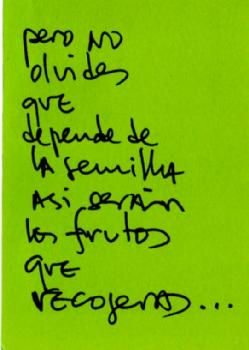 pero NO
olvides
que
depende de
LA semilla
ASI serán
los frutos
que
recogerás...